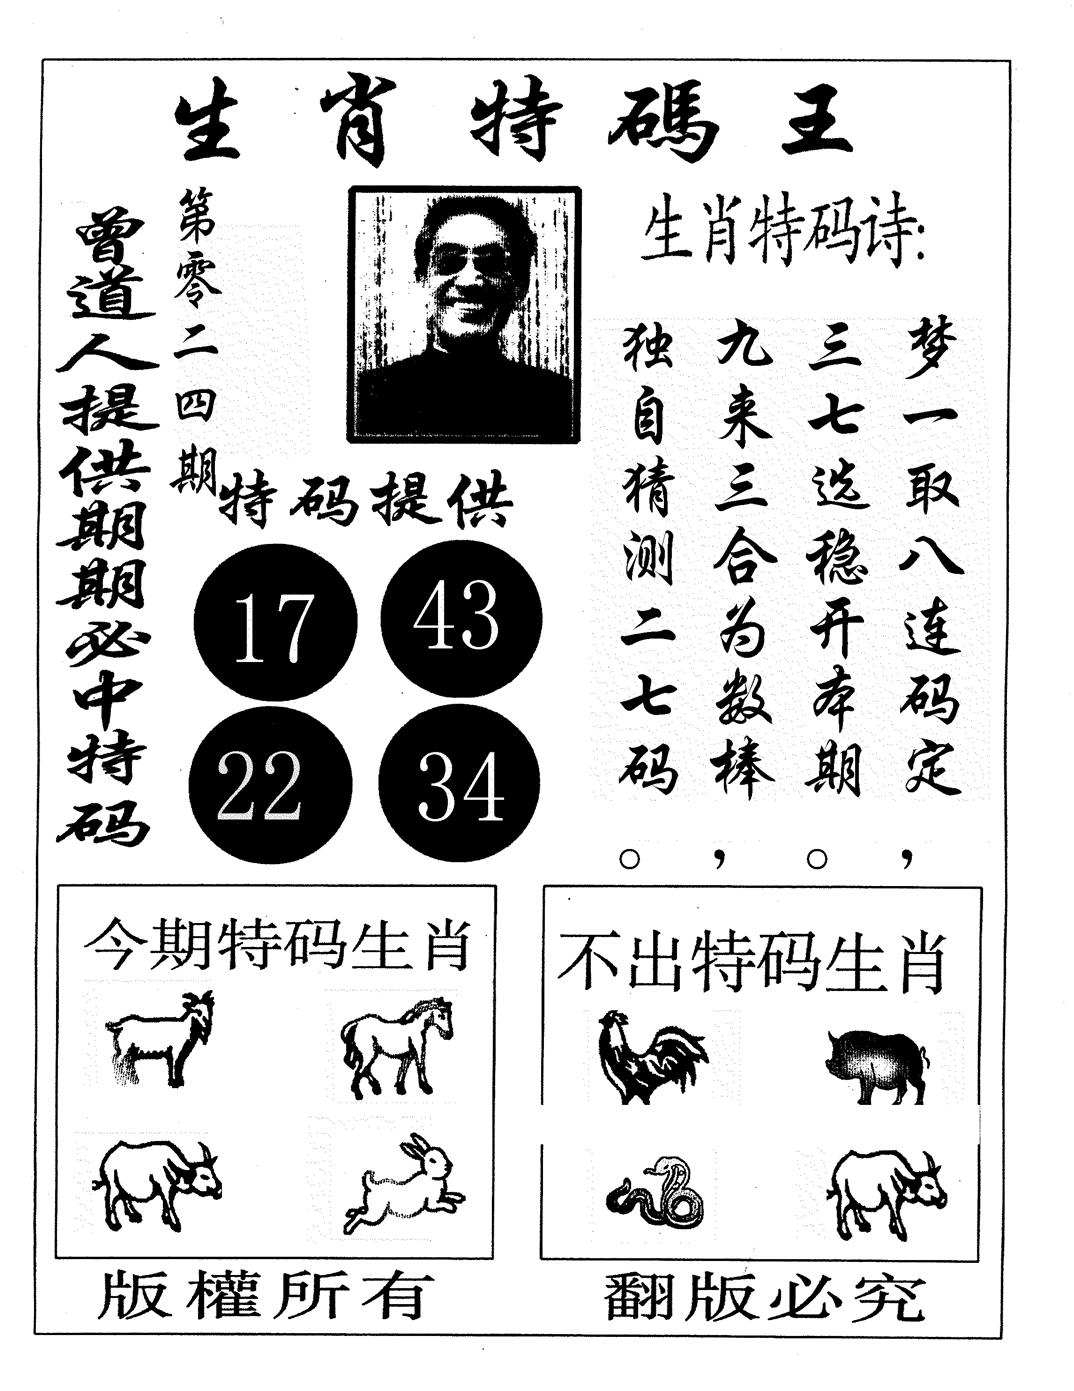 生肖特碼王
曾道人提供期期必中特码
第零二四期
生肖特码诗:
梦一取八连码定，
三七选稳开本期。
九来三合为数棒，
独自猜测二七码。
特码提供
17 43
22 34
今期特码生肖
不出特码生肖
版權所有
翻版必究